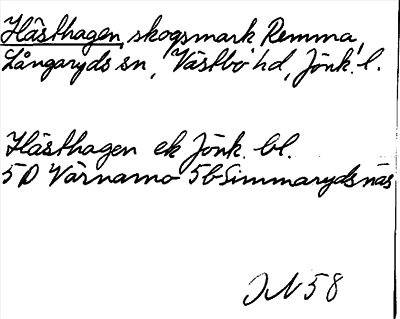 Hästhagen, skogsmark Remma,
Långaryds sn, Västbo hd, Jönk. l.
Hästhagen ek Jönk. bl.
5D Värnamo 5b Simmarydsnäs
JN 58